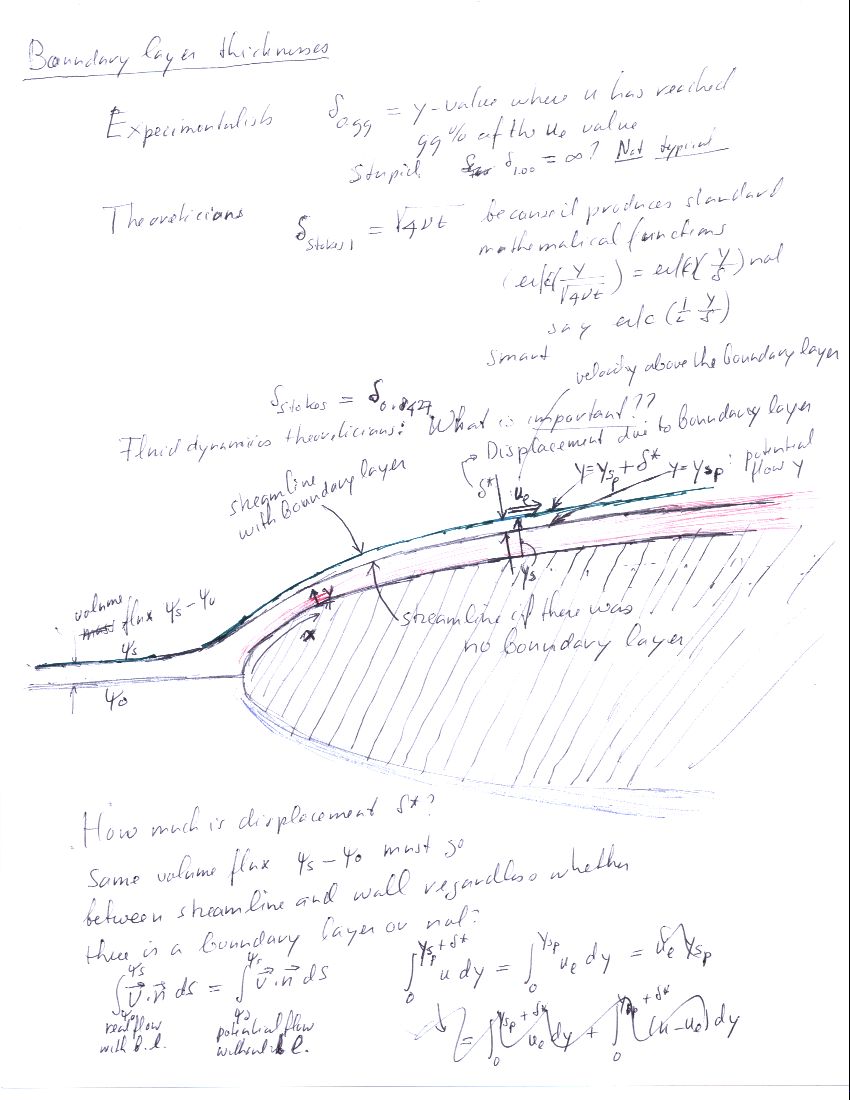 Boundary layer thicknesses
Experimentalists δ0.99 = y-value where u has reached
99% of the ue value
Stupid δ1.00 = ∞? Not typical
Theoreticians δStokes 1 = √4νt because it produces standard
mathematical functions
(erfc(y/√4νt) = erfc(y/δ) not
say erfc (1/2 y/δ)
Smart
velocity above the boundary layer
δStokes = δ0.8427
Fluid dynamics theoreticians: What is important??
Displacement due to boundary layer
streamline
with boundary layer
δ* ue y=ysp+δ* y=ysp: potential
flow y
ys
volume
flux ψs-ψ0
ψs
y
x
streamline if there was
no boundary layer
ψ0
How much is displacement δ*?
Same volume flux ψs-ψ0 must go
between streamline and wall regardless whether
there is a boundary layer or not:
∫ψ0^ψs v⃗·n⃗ ds = ∫ψ0^ψs v⃗·n⃗ ds
real flow
with b.l.
potential flow
without b.l.
∫0^ysp+δ* u dy = ∫0^ysp ue dy = ue ysp
= ∫0^ysp+δ* ue dy + ∫0^ysp+δ* (u-ue) dy